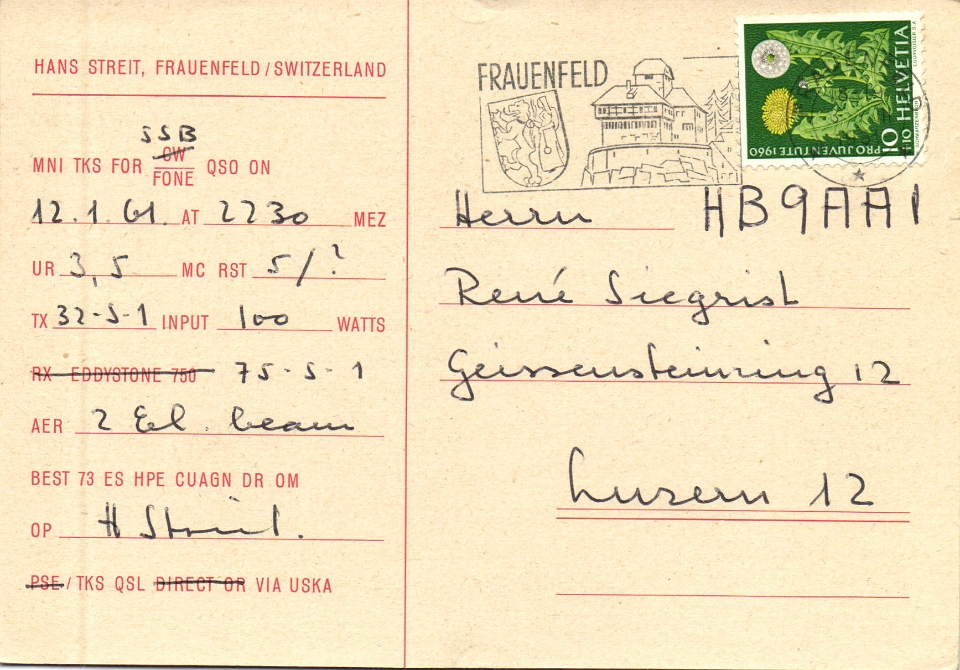 HANS STREIT, FRAUENFELD/SWITZERLAND
SSB
MNI TKS FOR CW QSO ON
FONE
12.1.61. AT 2230 MEZ
UR 3,5 MC RST 5/?
TX 32-S-1 INPUT 100 WATTS
RX EDDYSTONE 750 75-S-1
AER 2 El. beam
BEST 73 ES HPE CUAGN DR OM
OP H Streit.
PSE/TKS QSL DIRECT OR VIA USKA
FRAUENFELD
HELVETIA
10+10
PRO JUVENTUTE 1960
Herrn HB9AAI
René Siegrist
Geissensteinring 12
Luzern 12